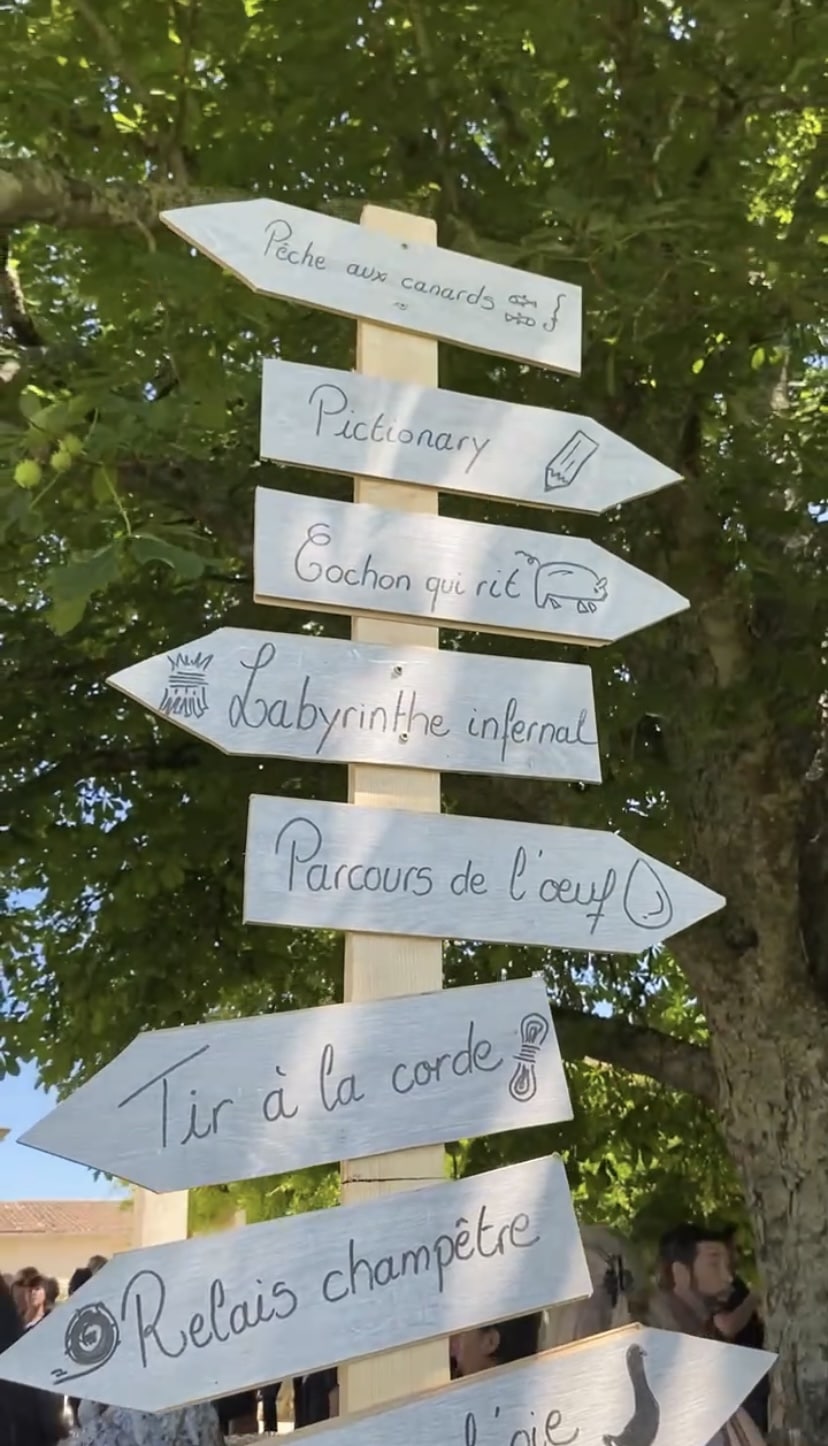 Pêche aux canards
Pictionary
Cochon qui rit
Labyrinthe infernal
Parcours de l'œuf
Tir à la corde
Relais champêtre
l'oie